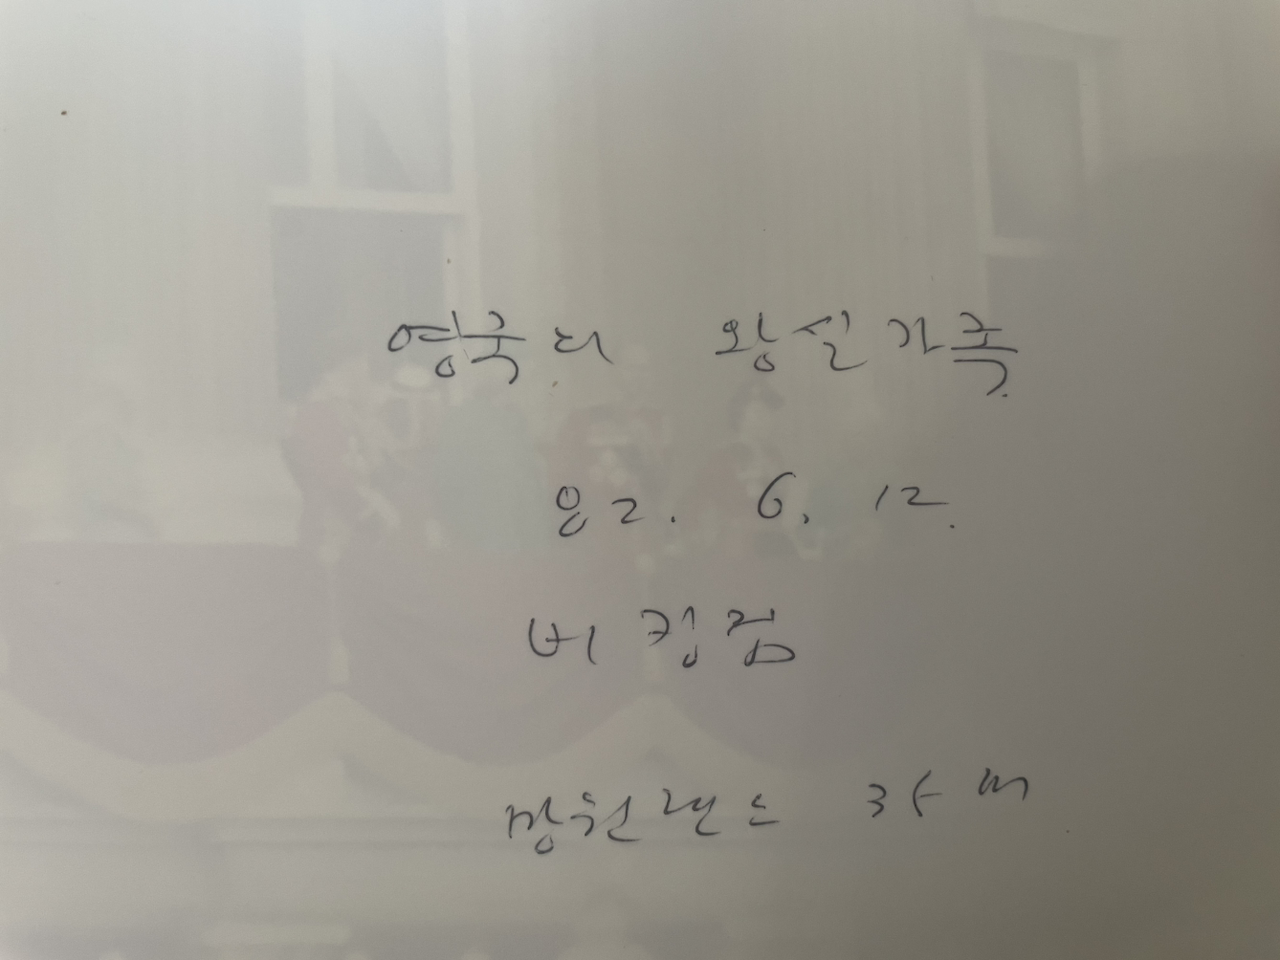 영국의 왕실가족
82. 6. 12.
버킹검
망원랜스